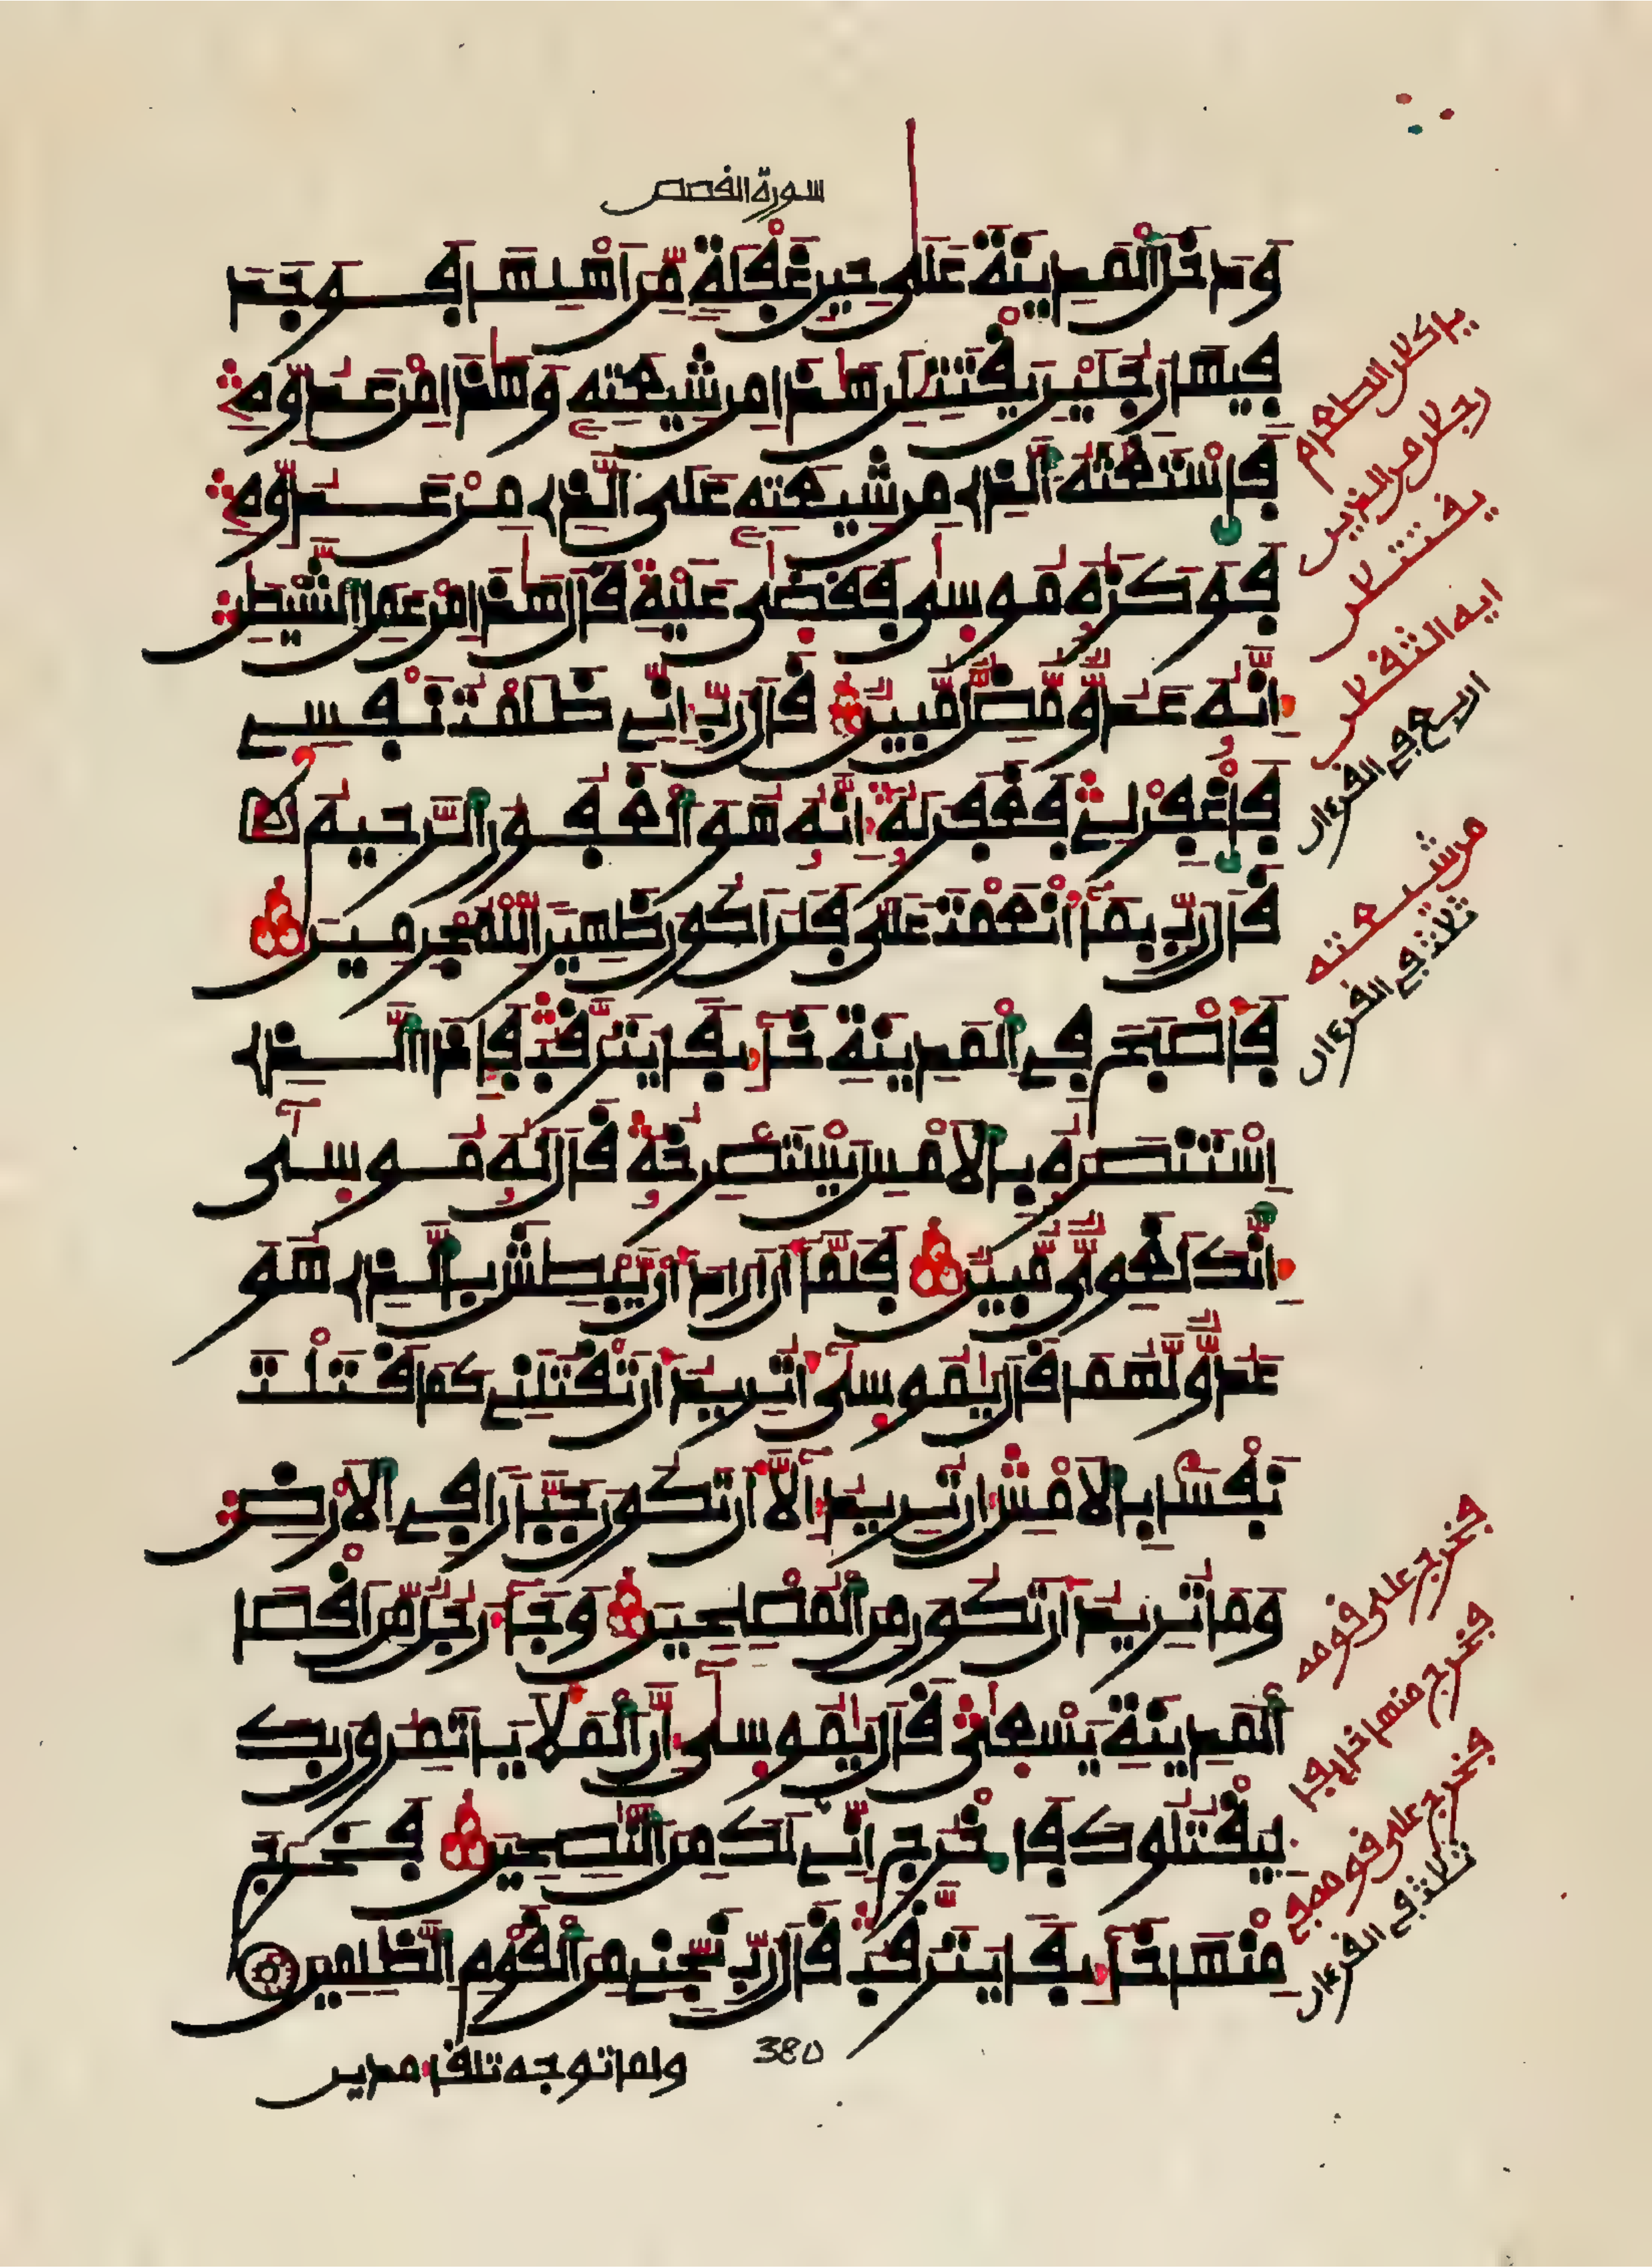 سورة القصص
وَدَخَلَ اَلْمَدِينَةَ عَلَىٰ حِينِ غَفْلَةٍ مِّنَ اَهْلِهَا فَوَجَدَ
فِيهَا رَجُلَيْنِ يَقْتَتِلَٰنِ هَٰذَا مِن شِيعَتِهِۦ وَهَٰذَا مِنْ عَدُوِّهِۦ
فَاسْتَغَٰثَهُ اُلذِے مِن شِيعَتِهِۦ عَلَى اَلذِے مِنْ عَدُوِّهِۦ
فَوَكَزَهُۥ مُوسَىٰ فَقَضَىٰ عَلَيْهِ قَالَ هَٰذَا مِنْ عَمَلِ اِلشَّيْطَٰنِ
إِنَّهُۥ عَدُوٌّ مُّضِلٌّ مُّبِينٌ قَالَ رَبِّ إِنِّے ظَلَمْتُ نَفْسِے
فَاغْفِرْ لِے فَغَفَرَ لَهُۥ إِنَّهُۥ هُوَ اَلْغَفُورُ اُلرَّحِيمُ
قَالَ رَبِّ بِمَا أَنْعَمْتَ عَلَيَّ فَلَنَ اَكُونَ ظَهِيرًا لِّلْمُجْرِمِينَ
فَأَصْبَحَ فِے اِلْمَدِينَةِ خَآئِفًا يَتَرَقَّبُ فَإِذَا اَلذِے
اِسْتَنصَرَهُۥ بِالَامْسِ يَسْتَصْرِخُهُۥ قَالَ لَهُۥ مُوسَىٰٓ
إِنَّكَ لَغَوِيٌّ مُّبِينٌ فَلَمَّا أَنَ اَرَادَ أَنْ يَّبْطِشَ بِالذِے هُوَ
عَدُوٌّ لَّهُمَا قَالَ يَٰمُوسَىٰٓ أَتُرِيدُ أَن تَقْتُلَنِے كَمَا قَتَلْتَ
نَفْسًا بِالَامْسِ إِن تُرِيدُ إِلَّآ أَن تَكُونَ جَبَّارًا فِے اِلَارْضِ
وَمَا تُرِيدُ أَن تَكُونَ مِنَ اَلْمُصْلِحِينَ وَجَآءَ رَجُلٌ مِّنَ اَقْصَا
اَلْمَدِينَةِ يَسْعَىٰ قَالَ يَٰمُوسَىٰٓ إِنَّ اَلْمَلَأَ يَاتَمِرُونَ بِكَ
لِيَقْتُلُوكَ فَاخْرُجِ اِنِّے لَكَ مِنَ اَلنَّٰصِحِينَ فَخَرَجَ
مِنْهَا خَآئِفًا يَتَرَقَّبُ قَالَ رَبِّ نَجِّنِے مِنَ اَلْقَوْمِ اِلظَّٰلِمِينَ
380
ولما توجه تلقاء مدين
ياكلان الطعام
رجلان من الذين
يقتتلان
ايه الثقلان
اربع في القرءان
من شيعته
ثلث في القرءان
فخرج على قومه
فخرج منها خايفا
فخرج على قومه في
ثلث في القرءان